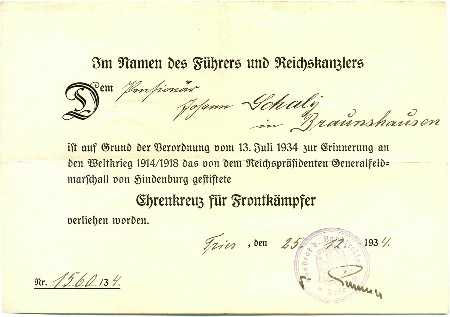 Im Namen des Führers und Reichskanzlers
Dem Pensionär
Johann Schaly
in Braunshausen
ist auf Grund der Verordnung vom 13. Juli 1934 zur Erinnerung an
den Weltkrieg 1914/1918 das von dem Reichspräsidenten Generalfeld-
marschall von Hindenburg gestiftete
Ehrenkreuz für Frontkämpfer
verliehen worden.
Trier, den 25. 12. 1934.
Nr. 1560.134.